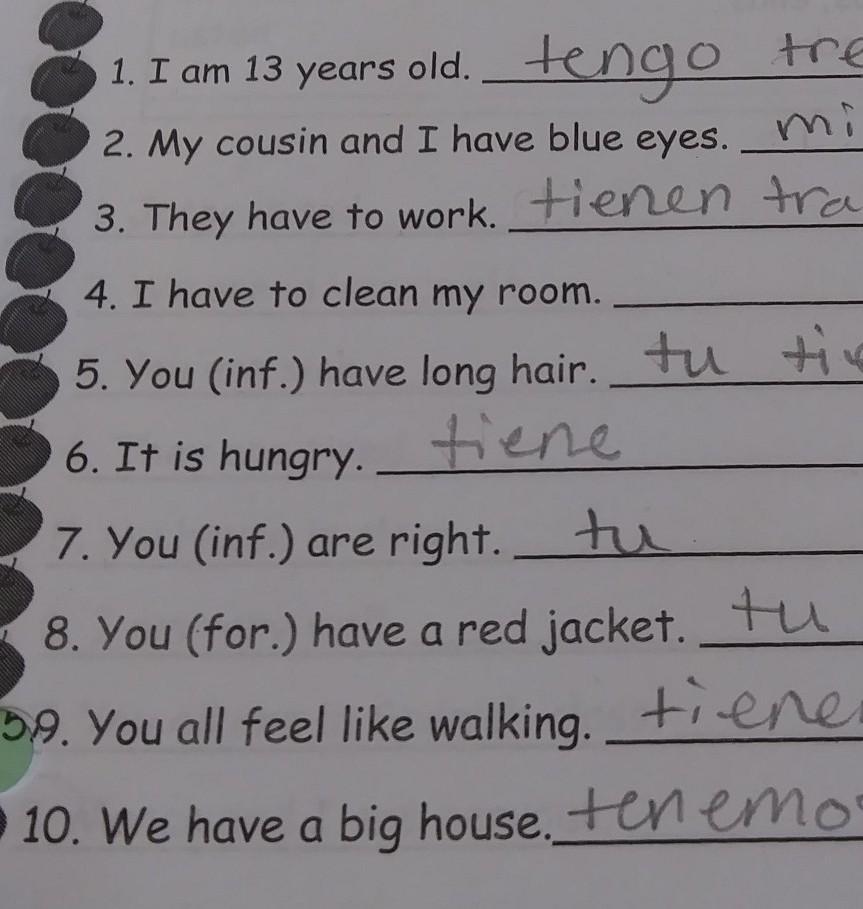 1. I am 13 years old. tengo tre
2. My cousin and I have blue eyes. mi
3. They have to work. tienen tra
4. I have to clean my room.
5. You (inf.) have long hair. tu tie
6. It is hungry. tiene
7. You (inf.) are right. tu
8. You (for.) have a red jacket. tu
9. You all feel like walking. tiene
10. We have a big house. tenemos